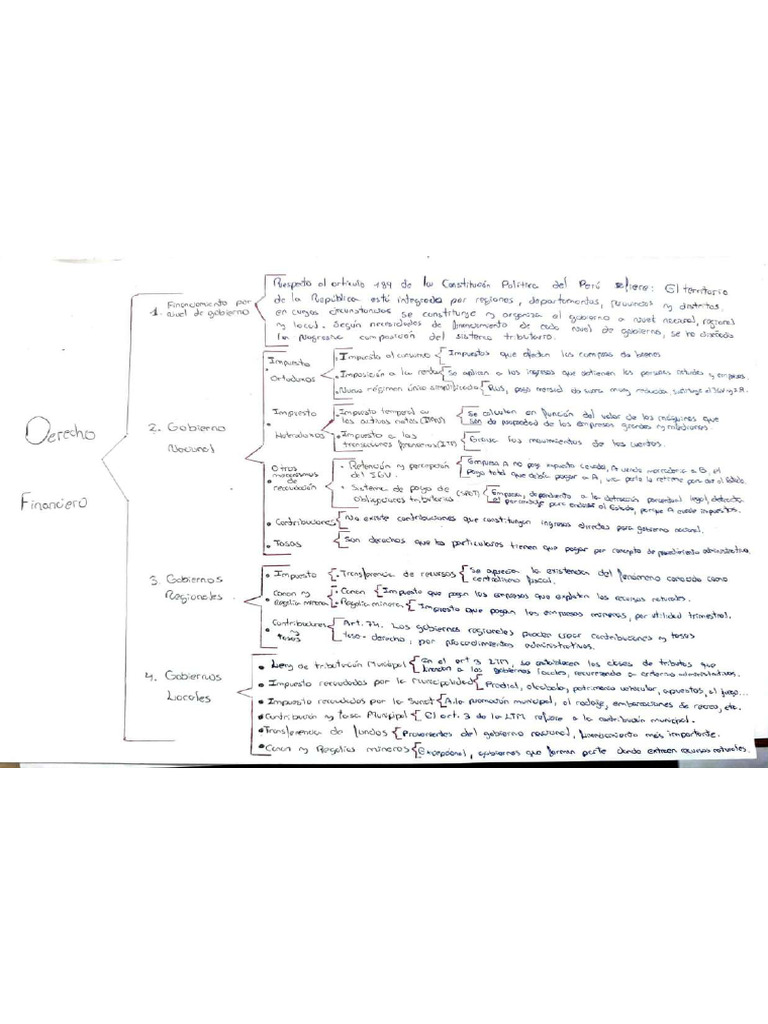 Derecho
Financiero
1. Financiamiento por
nivel de gobierno
Respecto al artículo 189 de la Constitución Política del Perú refiere: El territorio
de la República está integrada por regiones, departamentos, provincias y distritos.
en cuyas circunscripciones se constituye y organiza el gobierno a nivel nacional, regional
y local. Según necesidades de financiamiento de cada nivel de gobierno, se ha diseñado
la progresiva composición del sistema tributario.
2. Gobierno
Nacional
Impuesto
Ortodoxos
• Impuesto al consumo
Impuestos que afectan las compras de bienes
• Imposición a la renta
Se aplican a los ingresos que obtienen las personas naturales y empresas.
• Nuevo régimen único simplificado
Rus, pago mensual de suma muy reducida sustituye el IGV y I.R.
Impuesto
Heterodoxos
• Impuesto temporal a
los activos netos (ITAN)
Se calculan en función del valor de las máquinas que
son de propiedad de las empresas grandes y medianas.
• Impuesto a las
transacciones financieras (ITF)
Grava los movimientos de las cuentas.
• Otros
mecanismos
de recaudación
• Retención y percepción
del IGV.
Empresa A no paga impuesto causado, A vende mercadería a B, el
pago total que debía pagar a A, una parte la retiene para dar al Estado.
• Sistema de pago de
Obligaciones tributarias (SPOT)
Empresa, dependiendo a la detracción porcentual legal, detecta
el porcentaje para enviarse al Estado, porque A evade impuestos.
• Contribuciones
No existe contribuciones que constituyan ingresos directos para gobierno nacional.
• Tasas
Son derechos que los particulares tienen que pagar por concepto de procedimiento administrativo.
3. Gobiernos
Regionales
• Impuesto
• Transferencia de recursos
Se aprecia la existencia del fenómeno conocido como
centralismo fiscal.
Canon y
Regalía minera
• Canon
Impuesto que pagan las empresas que explotan los recursos naturales.
• Regalía minera
Impuesto que pagan las empresas mineras, por utilidad trimestral.
Contribuciones
y
• tasas
Art. 74. Los gobiernos regionales pueden crear contribuciones y tasas
tasa - derecho, por procedimientos administrativos.
4. Gobiernos
Locales
• Ley de tributación Municipal
En el art 3 LTM, se establecen las clases de tributos que
financian a los gobiernos locales, recurriendo a criterios administrativos.
• Impuesto recaudados por la Municipalidad
Predial, alcabala, patrimonio vehicular, apuestas, al juego...
• Impuesto recaudados por la Sunat
A la promoción municipal, al rodaje, embarcaciones de recreo, etc.
• Contribución y tasa Municipal
El art. 3 de la LTM refiere a la contribución municipal.
• Transferencia de fondos
Provenientes del gobierno nacional, financiamiento más importante.
• Canon y Regalías mineras
Excepcional, gobiernos que forman parte donde extraen recursos naturales.